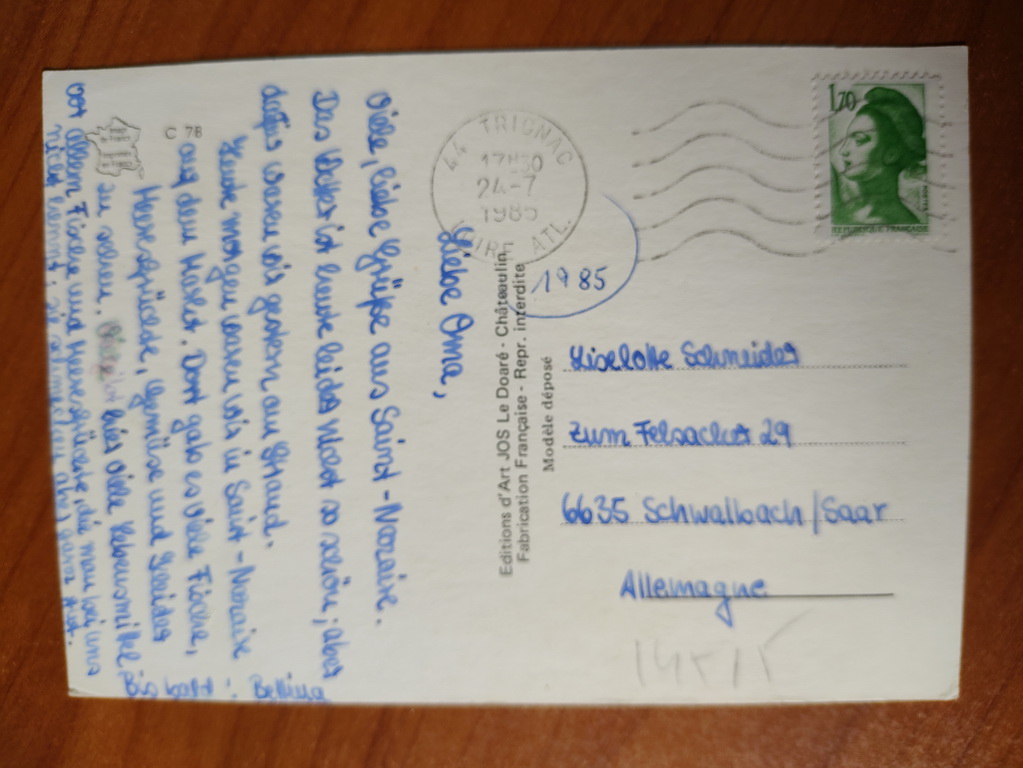 Liebe Oma,
viele, liebe Grüße aus Saint-Nazaire.
Das Wetter ist heute leider nicht so schön; aber
dafür waren wir gestern am Strand.
Heute morgen waren wir in Saint-Nazaire
auf dem Markt. Dort gab es viele Fische,
Meeresfrüchte, Gemüse und Kleider
zu sehen. hier viele Lebensmittel,
vor allem Fische und Meeresfrüchte, die man bei uns
nicht kennt; sie schmecken aber ganz gut.
Bis bald
Bettina
C 78
Editions d'Art JOS Le Doaré - Châteaulin
Fabrication Française - Repr. interdite
Modèle déposé
44 TRIGNAC
17H30
24-7
1985
LOIRE ATL.
1985
1,70
REPUBLIQUE FRANÇAISE
Liselotte Schneider
Zum Felsacker 29
6635 Schwalbach/Saar
Allemagne